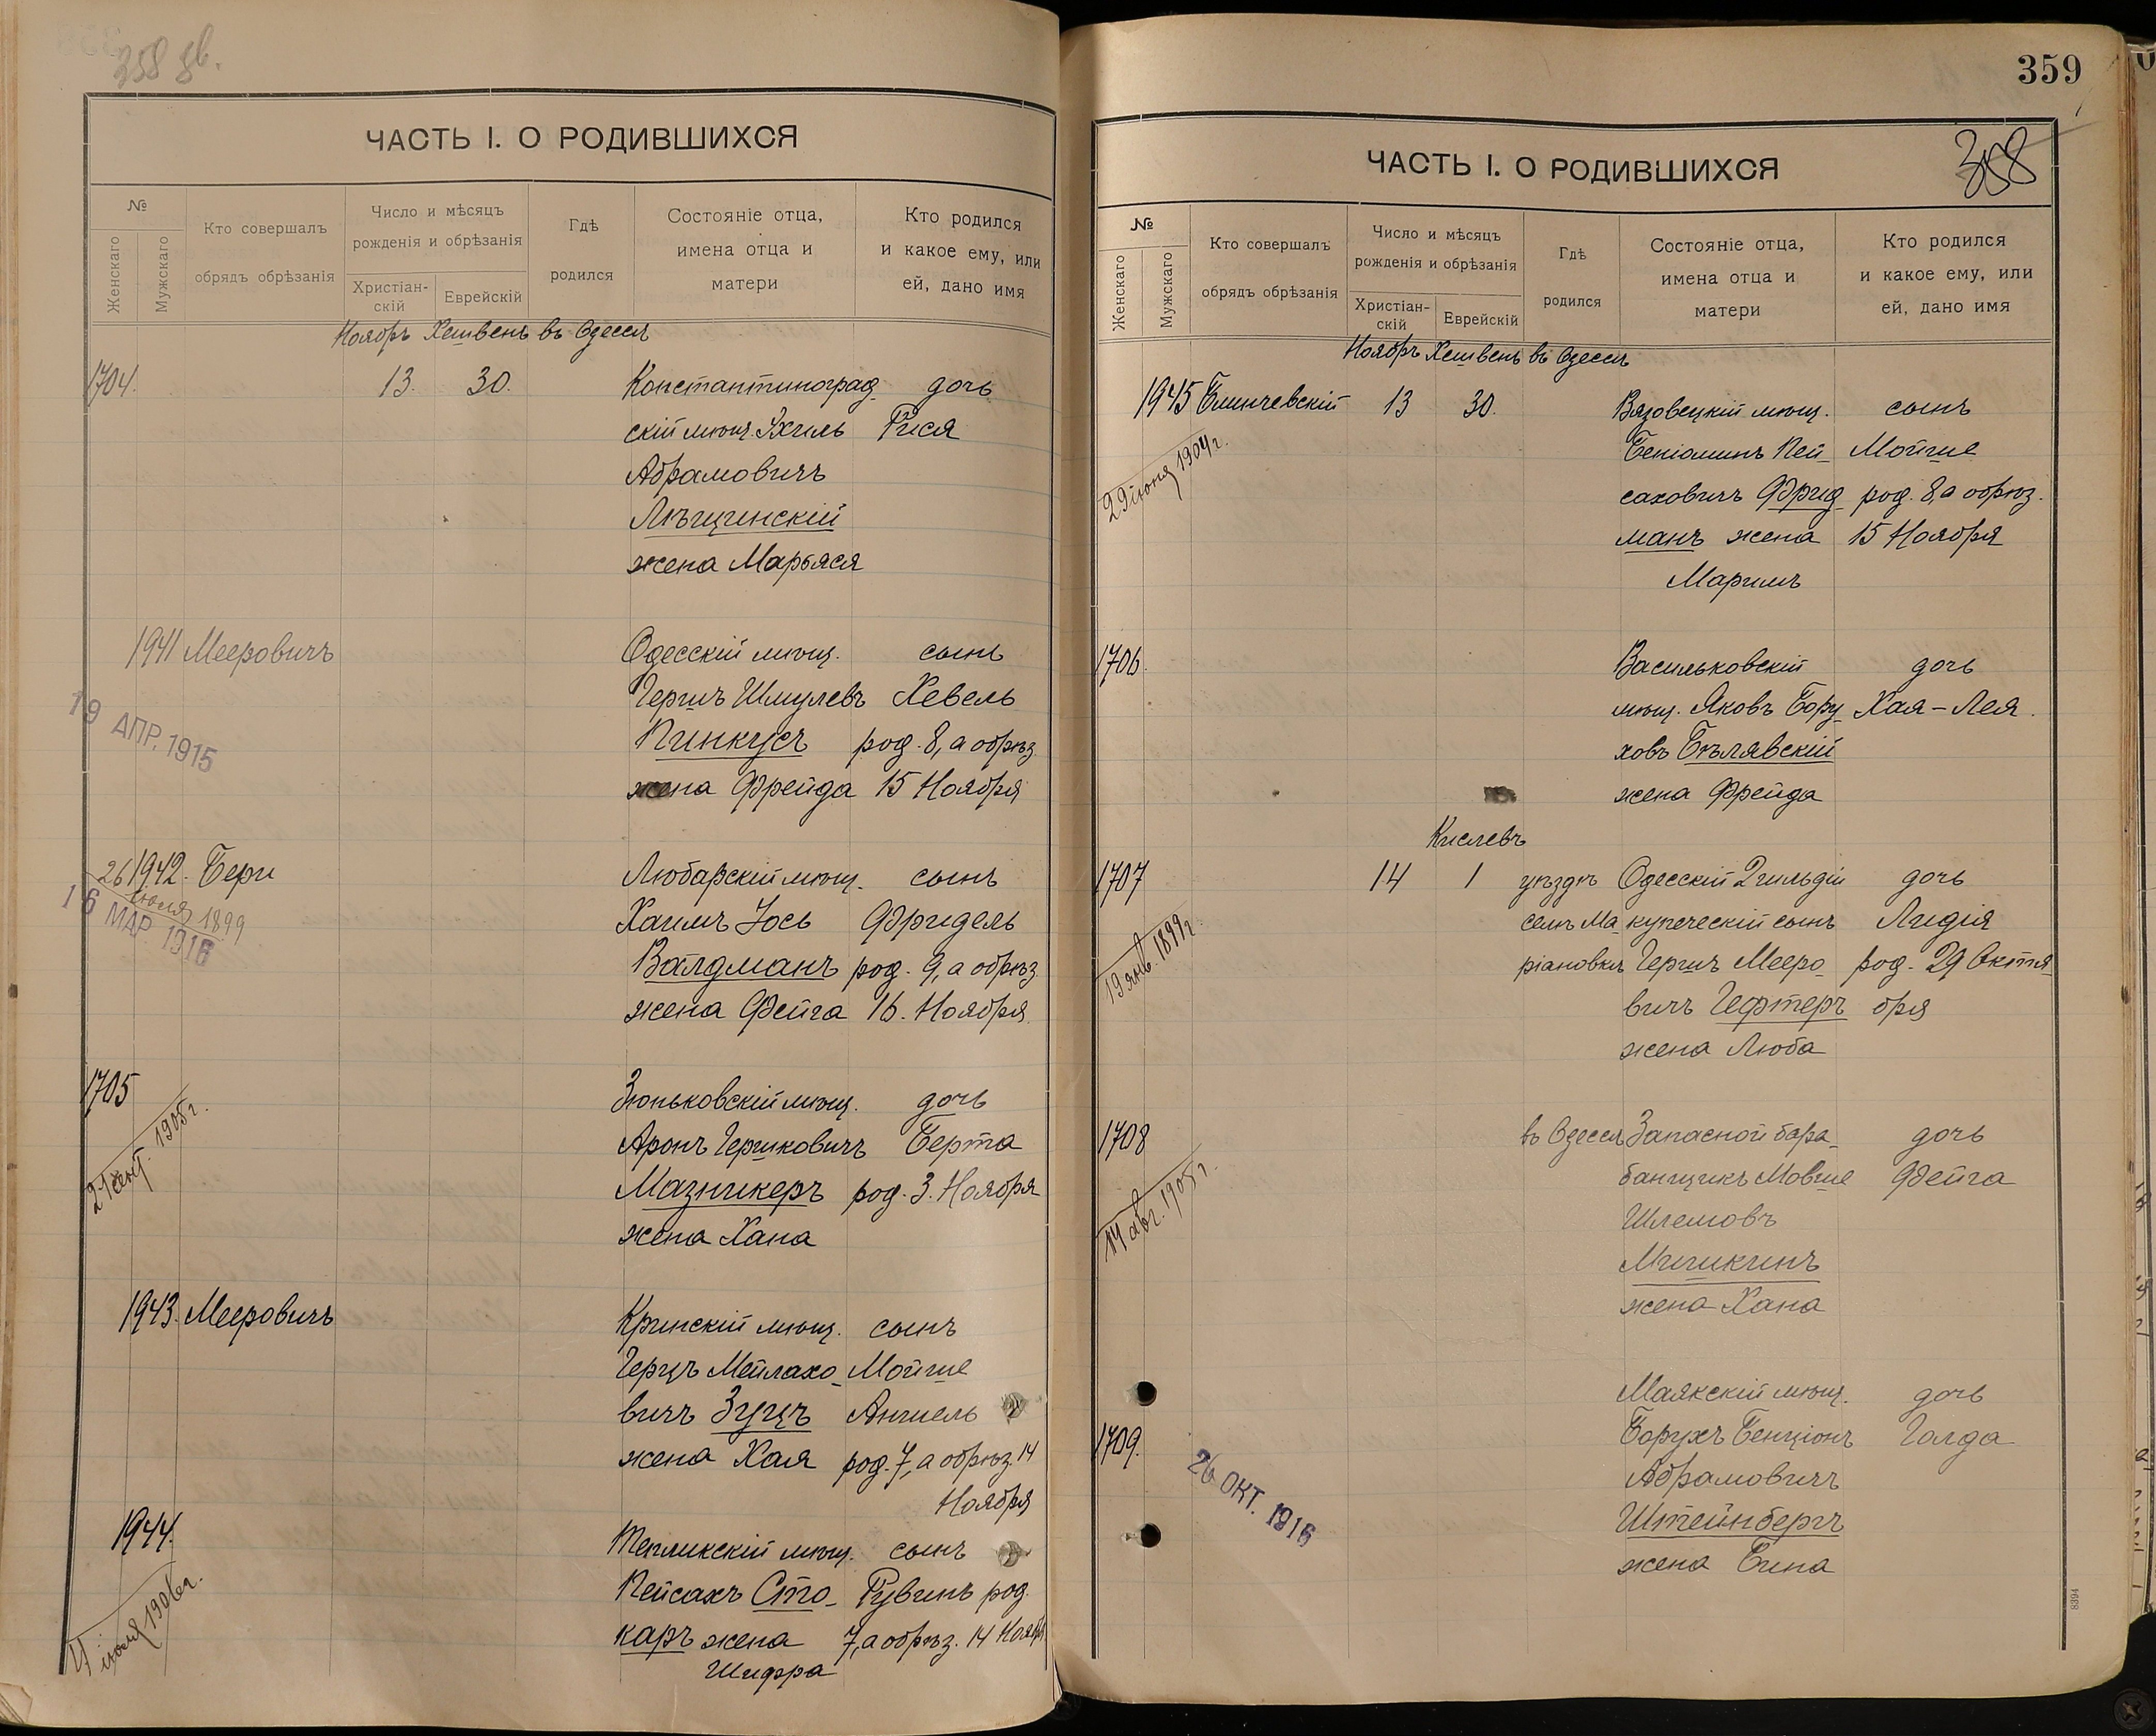 358 зв.
ЧАСТЬ I. О РОДИВШИХСЯ
№
Женскаго
Мужскаго
Кто совершалъ
обрядъ обрѣзанія
Число и мѣсяцъ
рожденія и обрѣзанія
Христіан-
скій
Еврейскій
Гдѣ
родился
Состояніе отца,
имена отца и
матери
Кто родился
и какое ему, или
ей, дано имя
Ноябрь Хешвенъ въ Одессѣ
1704. 13. 30. Константиноград- дочь
скій мѣщ. Ихиль Рися
Абрамовичъ
Лѣщинскій
жена Марьяся
1941 Мееровичъ Одесскій мѣщ. сынъ
Гершъ Шмулевъ Хевель
Пинкусъ род. 8, а обрѣз
жена Фрейда 15 Ноября
19 АПР. 1915
1942. Бери Любарскій мѣщ. сынъ
26 іюля 1899
16 МАР. 1916
Хаимъ Іось Фридель
Валдманъ род. 9, а обрѣз
жена Фейга 16. Ноября
1705 Зѣньковскій мѣщ. дочь
Аронъ Гершковичъ Берта
Мазникеръ род. 3. Ноября
жена Хана
21 сент. 1905 г.
1943. Мееровичъ Кринскій мѣщ. сынъ
Герцъ Мейлахо- Мойше
вичъ Зуцъ Аншель
жена Хая род. 7, а обрѣз. 14
Ноября
1944. Тепликскій мѣщ. сынъ
Пейсахъ Сто- Рувинъ род.
каръ жена 7, а обрѣз. 14 Ноябр
Шифра
4 іюля 1906 г.
359
358
ЧАСТЬ I. О РОДИВШИХСЯ
№
Женскаго
Мужскаго
Кто совершалъ
обрядъ обрѣзанія
Число и мѣсяцъ
рожденія и обрѣзанія
Христіан-
скій
Еврейскій
Гдѣ
родился
Состояніе отца,
имена отца и
матери
Кто родился
и какое ему, или
ей, дано имя
Ноябрь Хешвенъ въ Одессѣ
1945 Блинчевскій 13 30. Вязовецкій мѣщ. сынъ
Беніоминъ Пей- Мойше
саховичъ Фрид- род. 8 а обрѣз.
манъ жена 15 Ноября
Маримъ
29 іюня 1904 г.
1706. Васильковскій дочь
мѣщ. Яковъ Бору- Хая-Лея.
ховъ Бѣлявскій
жена Фрейда
Кислевъ
1707 14 1 уѣздѣ Одесскій 2 гильдіи дочь
селѣ Ма- купеческій сынъ Лидія
ріановкѣ Гершъ Мееро- род. 29 Октя-
вичъ Гефтеръ бря
жена Люба
19 янв. 1899 г.
1708 въ Одессѣ Запасной бара- дочь
банщикъ Мовше Фейга
Шлемовъ
Мишкинъ
жена Хана
14 авг. 1905 г.
Маякскій мѣщ. дочь
1709. Борухъ Бенціонъ Голда
Абрамовичъ
Штейнбергъ
жена Бина
26 ОКТ. 1916
8394